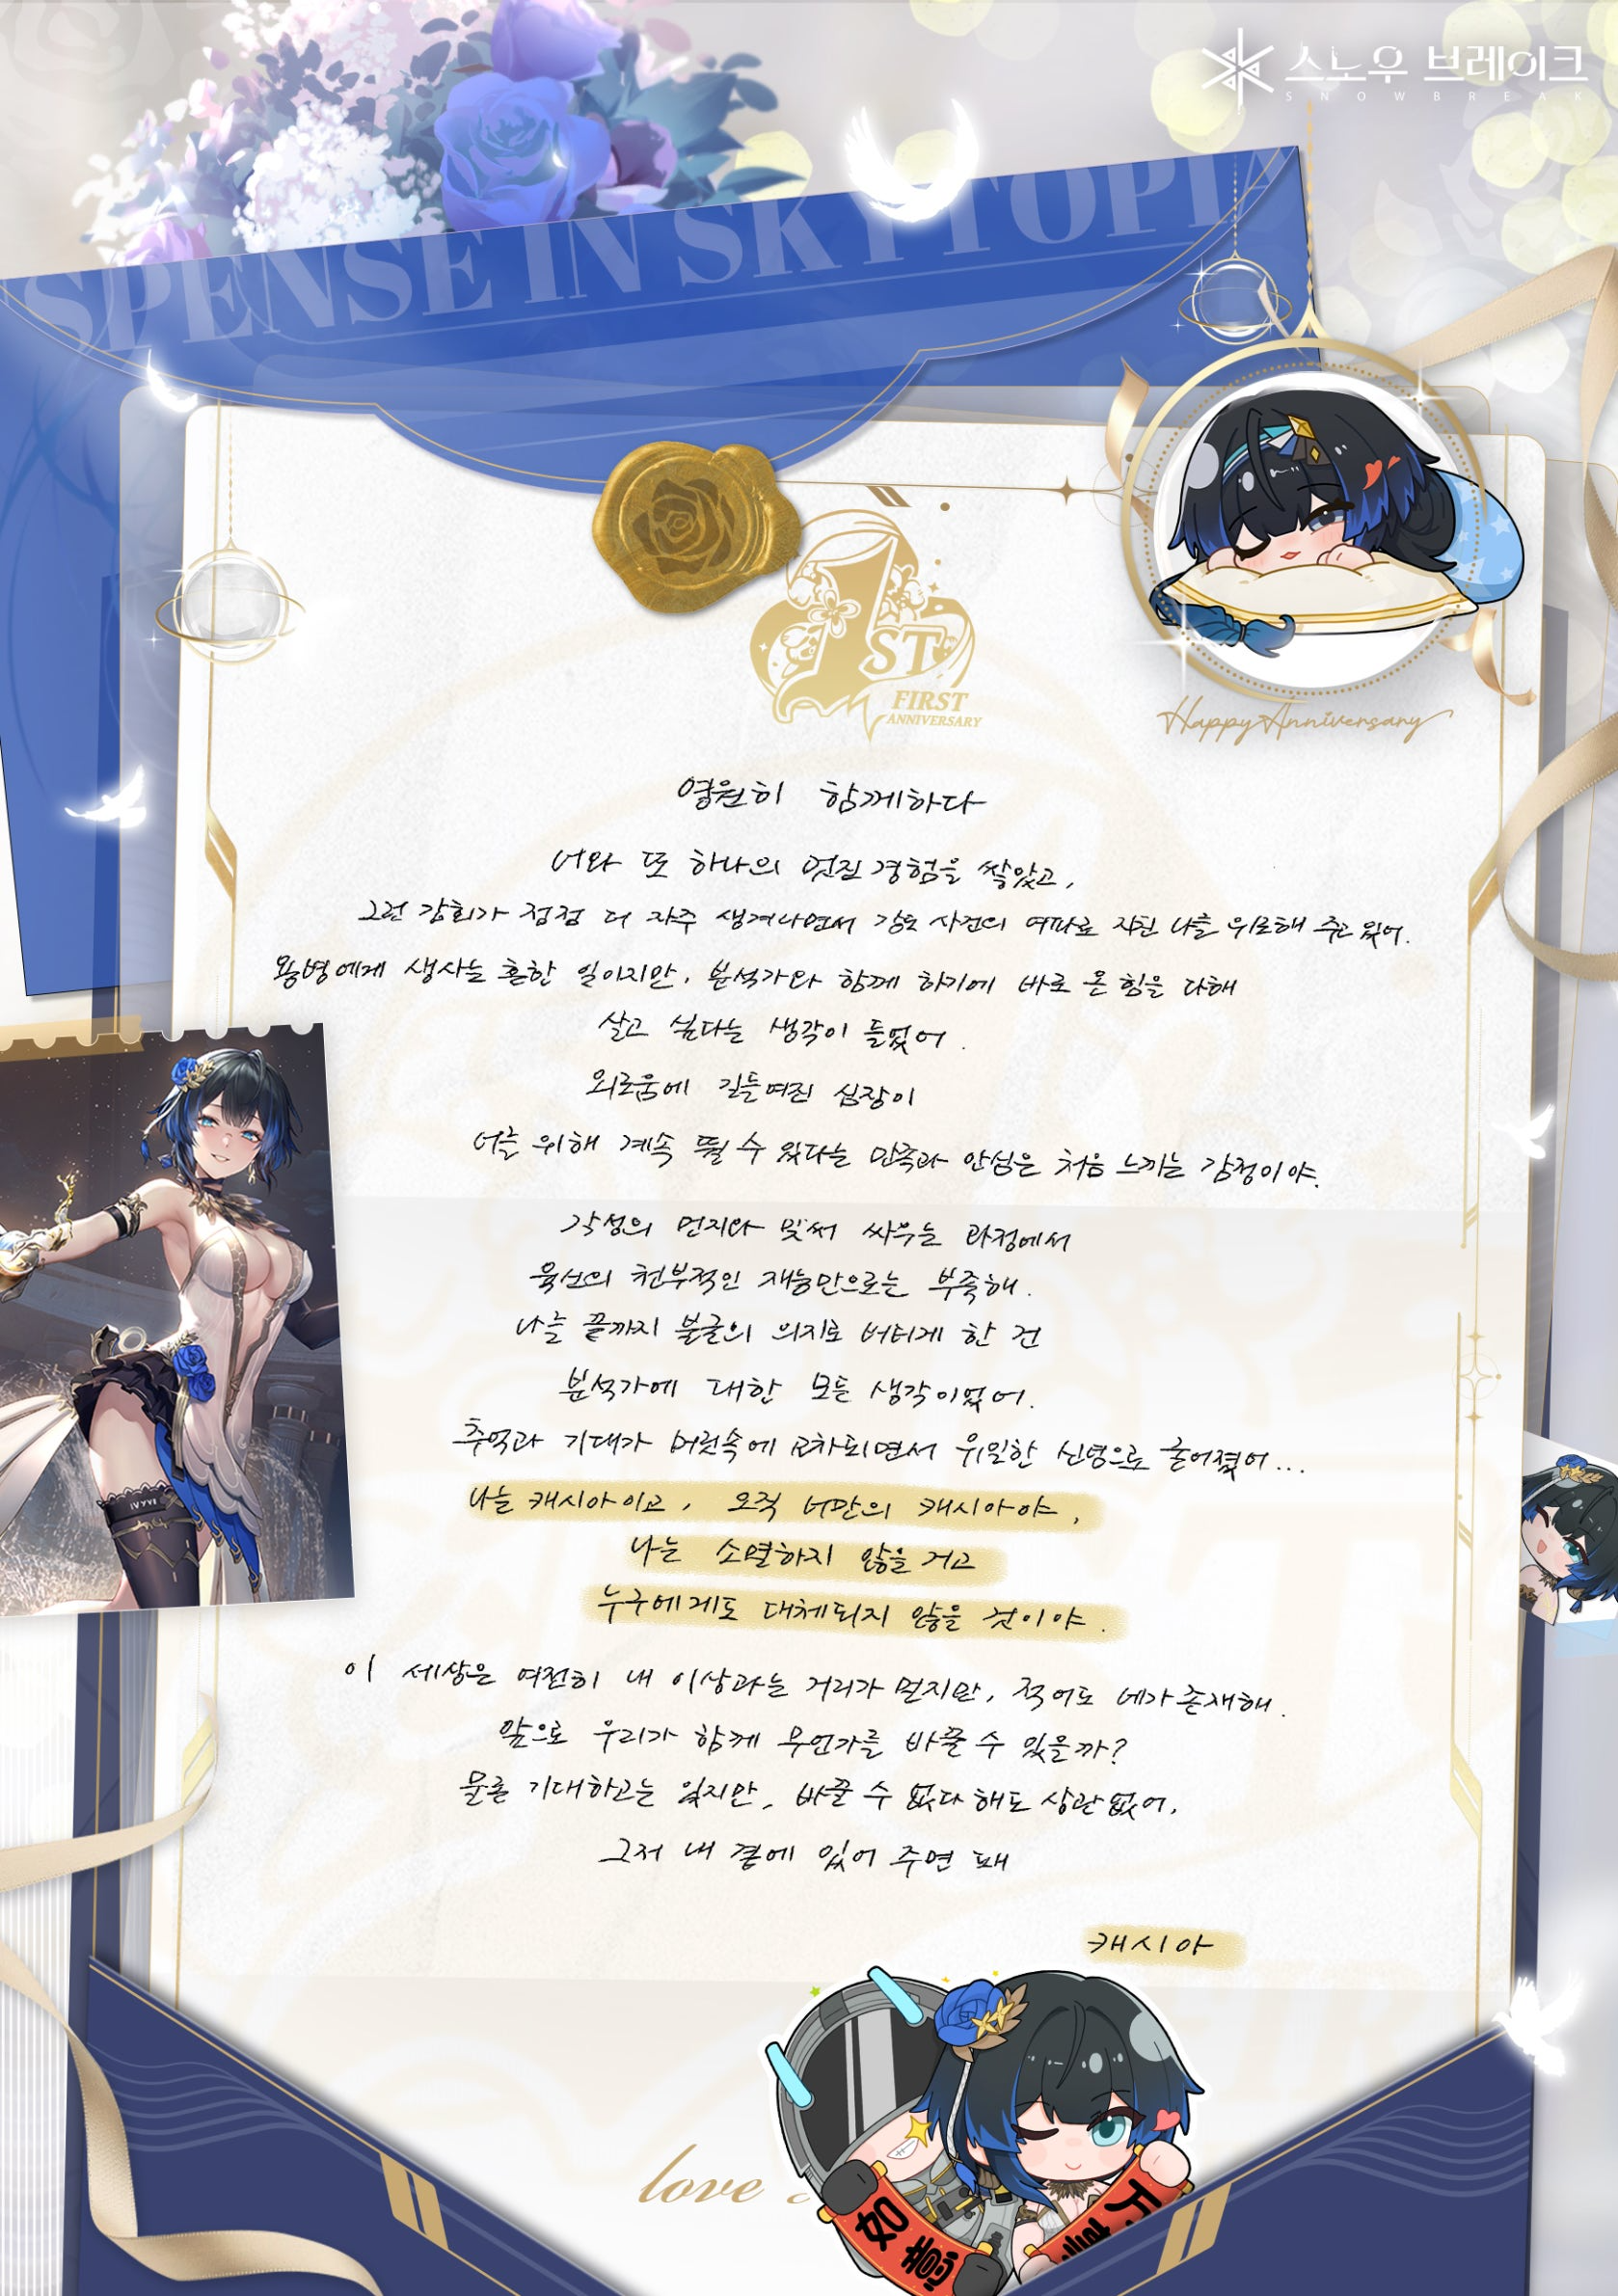 스노우 브레이크
SNOWBREAK
SPENSE IN SKYTOPIA
1ST
FIRST
ANNIVERSARY
Happy Anniversary
영원히 함께하다
너와 또 하나의 멋진 경험을 쌓았고,
그런 감회가 점점 더 자주 생겨나면서 강토 사건의 여파로 지친 나를 위로해 주고 있어.
용병에게 생사는 흔한 일이지만, 분석가와 함께 하기에 바로 온 힘을 다해
살고 싶다는 생각이 들었어.
외로움에 길들여진 심장이
너를 위해 계속 뛸 수 있다는 만족과 안심은 처음 느끼는 감정이야.
각성의 먼지와 맞써 싸우는 과정에서
육신의 천부적인 재능만으로는 부족해.
나를 끝까지 불굴의 의지로 버티게 한 건
분석가에 대한 모든 생각이었어.
추억과 기대가 머릿속에 교차되면서 유일한 신명으로 굳어졌어...
나는 캐시아이고, 오직 너만의 캐시아야,
나는 소멸하지 않을 거고
누구에게도 대체되지 않을 것이야.
이 세상은 여전히 내 이상과는 거리가 먼지만, 적어도 네가 존재해.
앞으로 우리가 함께 무언가를 바꿀 수 있을까?
물론 기대하고는 있지만, 바꿀 수 없다 해도 상관없어,
그저 내 곁에 있어 주면 돼
캐시아
IVYVI
love
如意
万